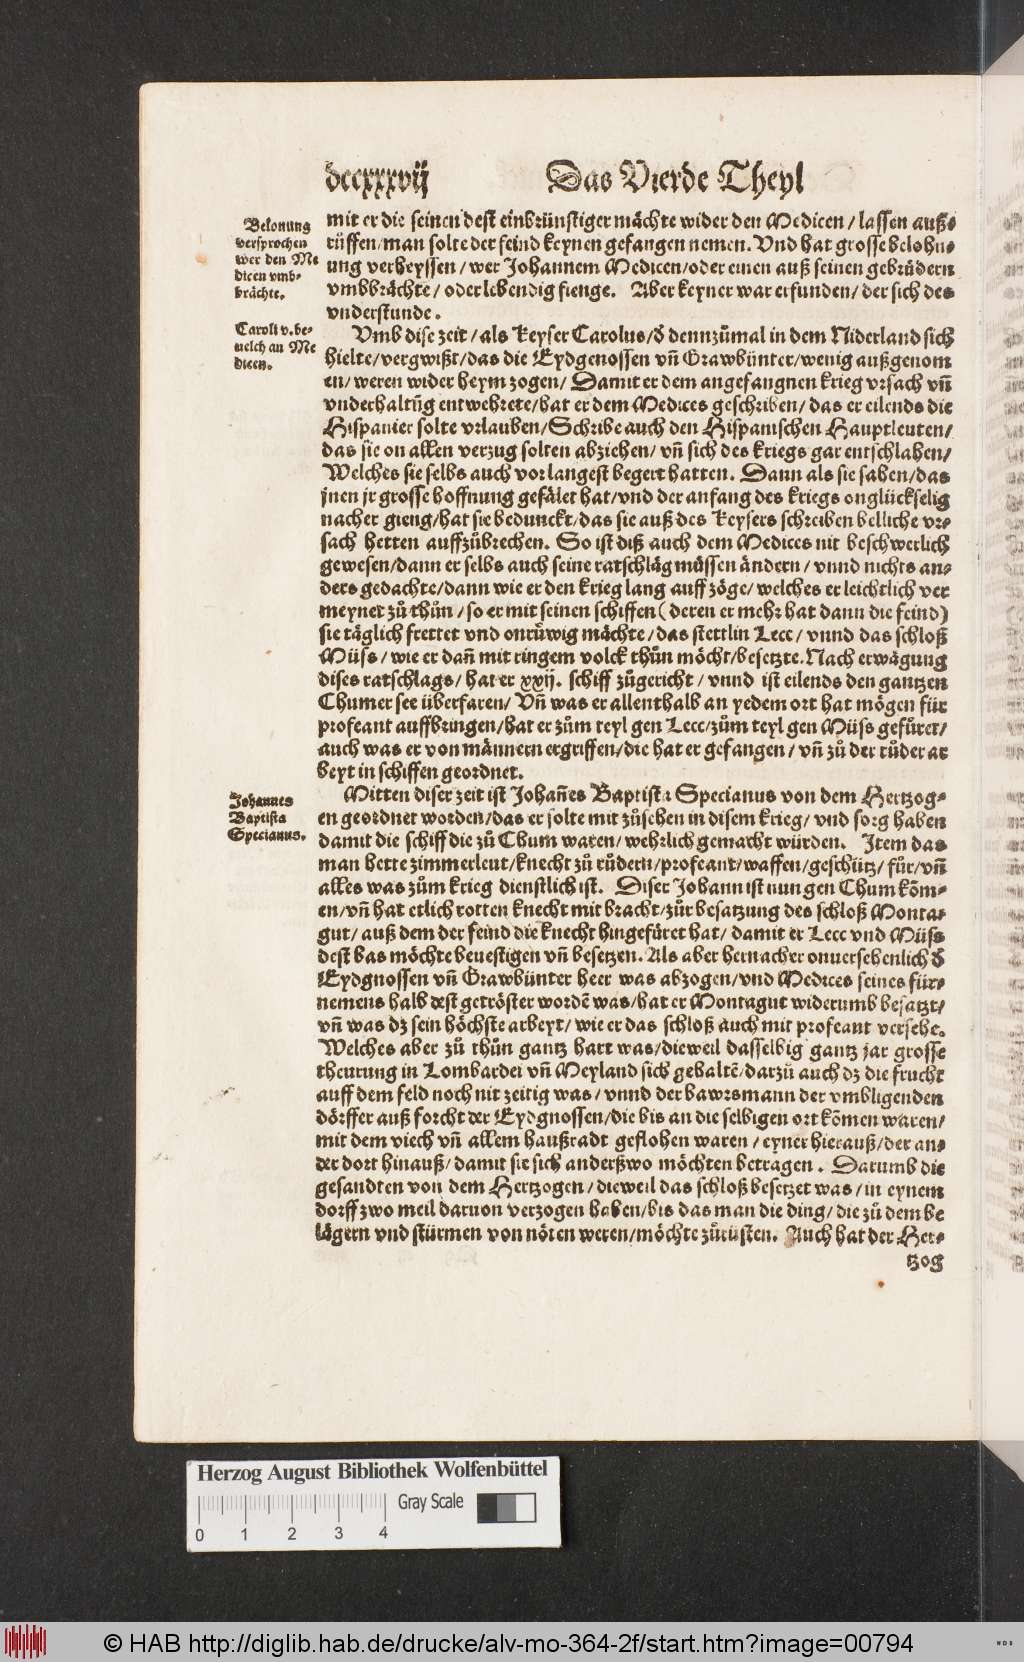 dccxxxvij Das Vierde Theyl
Belonung
versprochen
wer den Me
dicen vmb⸗
brächte.
mit er die seinen dest einbrünstiger mächte wider den Medicen / lassen auß⸗
rüffen/man solte der feind keynen gefangen nemen. Vnd hat grosse belohn⸗
ung verheyssen / wer Johannem Medicen/oder einen auß seinen gebrüdern
vmbbrächte / oder lebendig fienge. Aber keyner war erfunden/ der sich des
vnderstunde.
Caroli v. be⸗
uelch an Me
dicen.
Vmb dise zeit / als Keyser Carolus/ d̕ dennzůmal in dem Niderland sich
hielte/vergwißt/das die Eydgenossen vñ Grawbünter/wenig außgenom
en/ weren wider heym zogen/ Damit er dem angefangnen krieg vrsach vñ
vnderhaltũg entwehrete/hat er dem Medices geschriben/ das er eilends die
Hispanier solte vrlauben/Schribe auch den Hispanischen Hauptleuten/
das sie on allen verzug solten abziehen/ vñ sich des kriegs gar entschlahen/
Welches sie selbs auch vorlangest begert hatten. Dann als sie sahen/das
jnen jr grosse hoffnung gefälet hat/vnd der anfang des kriegs onglückselig
nacher gieng/hat sie bedunckt/das sie auß des Keysers schreiben belliche vr⸗
sach hetten auffzůbrechen. So ist diß auch dem Medices nit beschwerlich
gewesen/dann er selbs auch seine ratschläg müssen ändern / vnnd nichts an⸗
ders gedachte/dann wie er den krieg lang auff zöge/ welches er leichtlich ver
meynet zů thůn / so er mit seinen schiffen ( deren er mehr hat dann die feind)
sie täglich frettet vnd onrüwig mächte/das stettlin Lecc / vnnd das schloß
Müss / wie er dañ mit ringem volck thůn möcht/besetzte. Nach erwägung
dises ratschlags/ hat er xxij. schiff zůgericht / vnnd ist eilends den gantzen
Chumer see überfaren/ Vñ was er allenthalb an yedem ort hat mögen für
profeant auffbringen/hat er zům teyl gen Lecc/zům teyl gen Müss gefüret/
auch was er von männern ergriffen/die hat er gefangen / vñ zů der růder ar
beyt in schiffen geordnet.
Johannes
Baptista
Specianus.
Mitten diser zeit ist Johañes Baptista Specianus von dem Hertzog⸗
en geordnet worden/das er solte mit zůsehen in disem krieg/ vnd sorg haben
damit die schiff die zů Chum waren/ wehrlich gemacht würden. Item das
man hette zimmerleut/knecht zů růdern/profeant/waffen/geschütz/ für/vñ
alles was zům krieg dienstlich ist. Diser Johann ist nun gen Chum kõm⸗
en/vñ hat etlich rotten knecht mit bracht/zůr besatzung des schloß Montar
gut/ auß dem der feind die knecht hingefüret hat/ damit er Lecc vnd Müss
dest bas möchte beuestigen vñ besetzen. Als aber hernacher onuersehenlich d̕
Eydgnossen vñ Grawbünter heer was abzogen/vnd Medices seines für⸗
nemens halb dest getröster wordẽ was/hat er Montagut widerumb besatzt/
vñ was dz sein höchste arbeyt/ wie er das schloß auch mit profeant versehe.
Welches aber zů thůn gantz hart was/dieweil dasselbig gantz jar grosse
theurung in Lombardei vñ Meyland sich gehaltẽ/darzů auch dz die frucht
auff dem feld noch nit zeitig was / vnnd der bawrsmann der vmbligenden
dörffer auß forcht der Eydgnossen/die bis an die selbigen ort kõmen waren/
mit dem viech vñ allem haußradt geflohen waren / eyner hierauß/der an⸗
der dort hinauß/ damit sie sich anderßwo möchten betragen. Darumb die
gesandten von dem Hertzogen / dieweil das schloß besetzet was / in eynem
dorff zwo meil daruon verzogen haben/bis das man die ding/ die zů dem be
lägern vnd stürmen von nöten weren/möchte zůrüsten. Auch hat der Her⸗
tzog
Herzog August Bibliothek Wolfenbüttel
Gray Scale
0 1 2 3 4
© HAB http://diglib.hab.de/drucke/alv-mo-364-2f/start.htm?image=00794